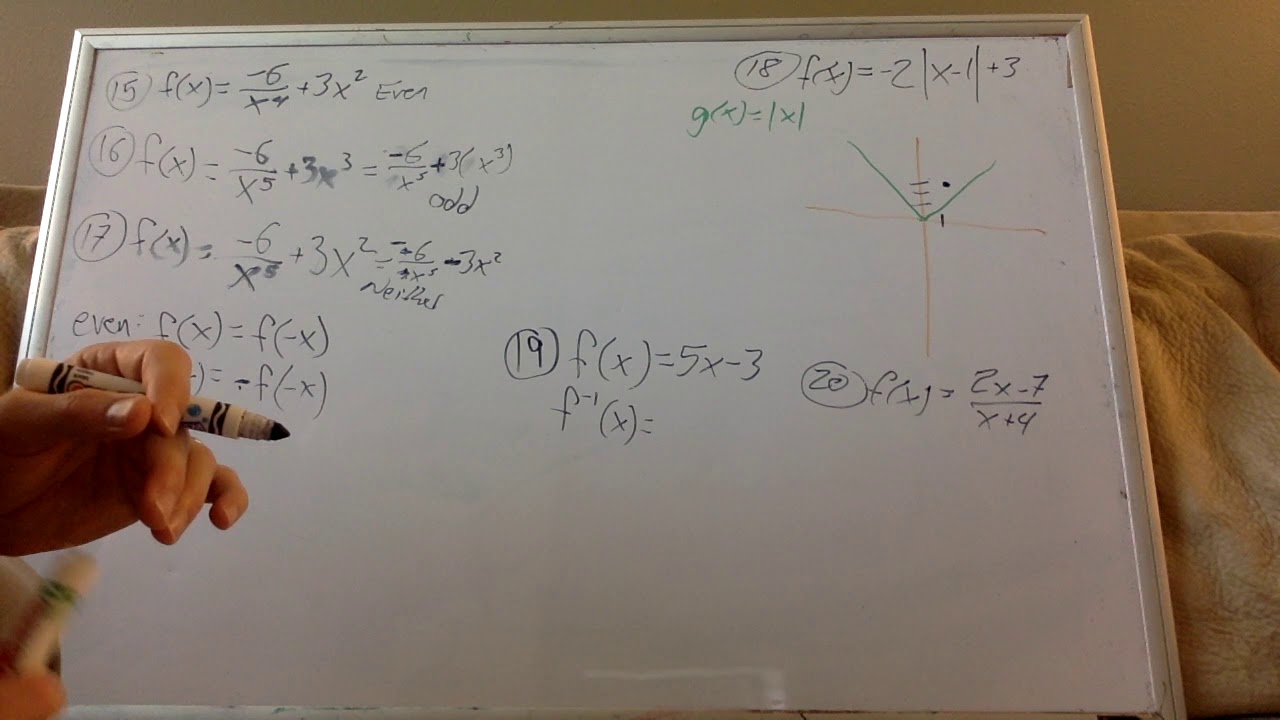 15 f(x) = -6/x⁴ + 3x² Even
16 f(x) = -6/x⁵ + 3x³ = -6/x⁵ + 3(x³)
odd
17 f(x) = -6/x⁵ + 3x² = -6/x⁵ - 3x²
Neither
even: f(x) = f(-x)
) = -f(-x)
18 f(x) = -2|x-1| + 3
g(x) = |x|
1
19 f(x) = 5x-3
f⁻¹(x) =
20 f(x) = 2x-7/x+4